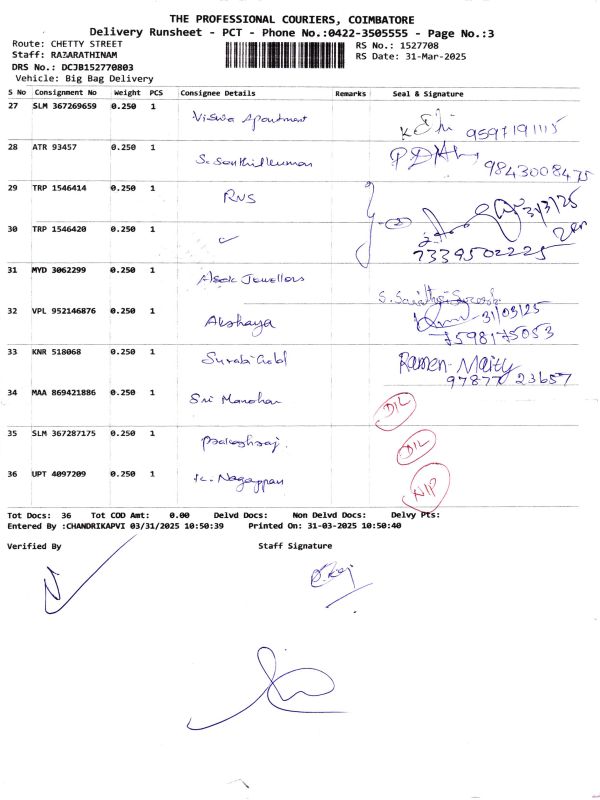 THE PROFESSIONAL COURIERS, COIMBATORE
Delivery Runsheet - PCT - Phone No.:0422-3505555 - Page No.:3
Route: CHETTY STREET
RS No.: 1527708
Staff: RAZARATHINAM
RS Date: 31-Mar-2025
DRS No.: DCJB152770803
Vehicle: Big Bag Delivery
S No Consignment No Weight PCS Consignee Details Remarks Seal & Signature
27 SLM 367269659 0.250 1 Viswa Apartment 9597191115
28 ATR 93457 0.250 1 S. Senthilkumar 9843008475
29 TRP 1546414 0.250 1 RNS 31/3/25
30 TRP 1546420 0.250 1 2 7339502225
31 MYD 3062299 0.250 1 Asok Jewellers
32 VPL 952146876 0.250 1 Akshaya 31/03/25
7598175053
33 KNR 518068 0.250 1 Surabi Gold Ramen Maity
97877 23657
34 MAA 869421886 0.250 1 Sri Manohar D/L
35 SLM 367287175 0.250 1 D/L
36 UPT 4097209 0.250 1 K. Nagappan N/P
Tot Docs: 36 Tot COD Amt: 0.00 Delvd Docs: Non Delvd Docs: Delvy Pts:
Entered By :CHANDRIKAPVI 03/31/2025 10:50:39 Printed On: 31-03-2025 10:50:40
Verified By Staff Signature